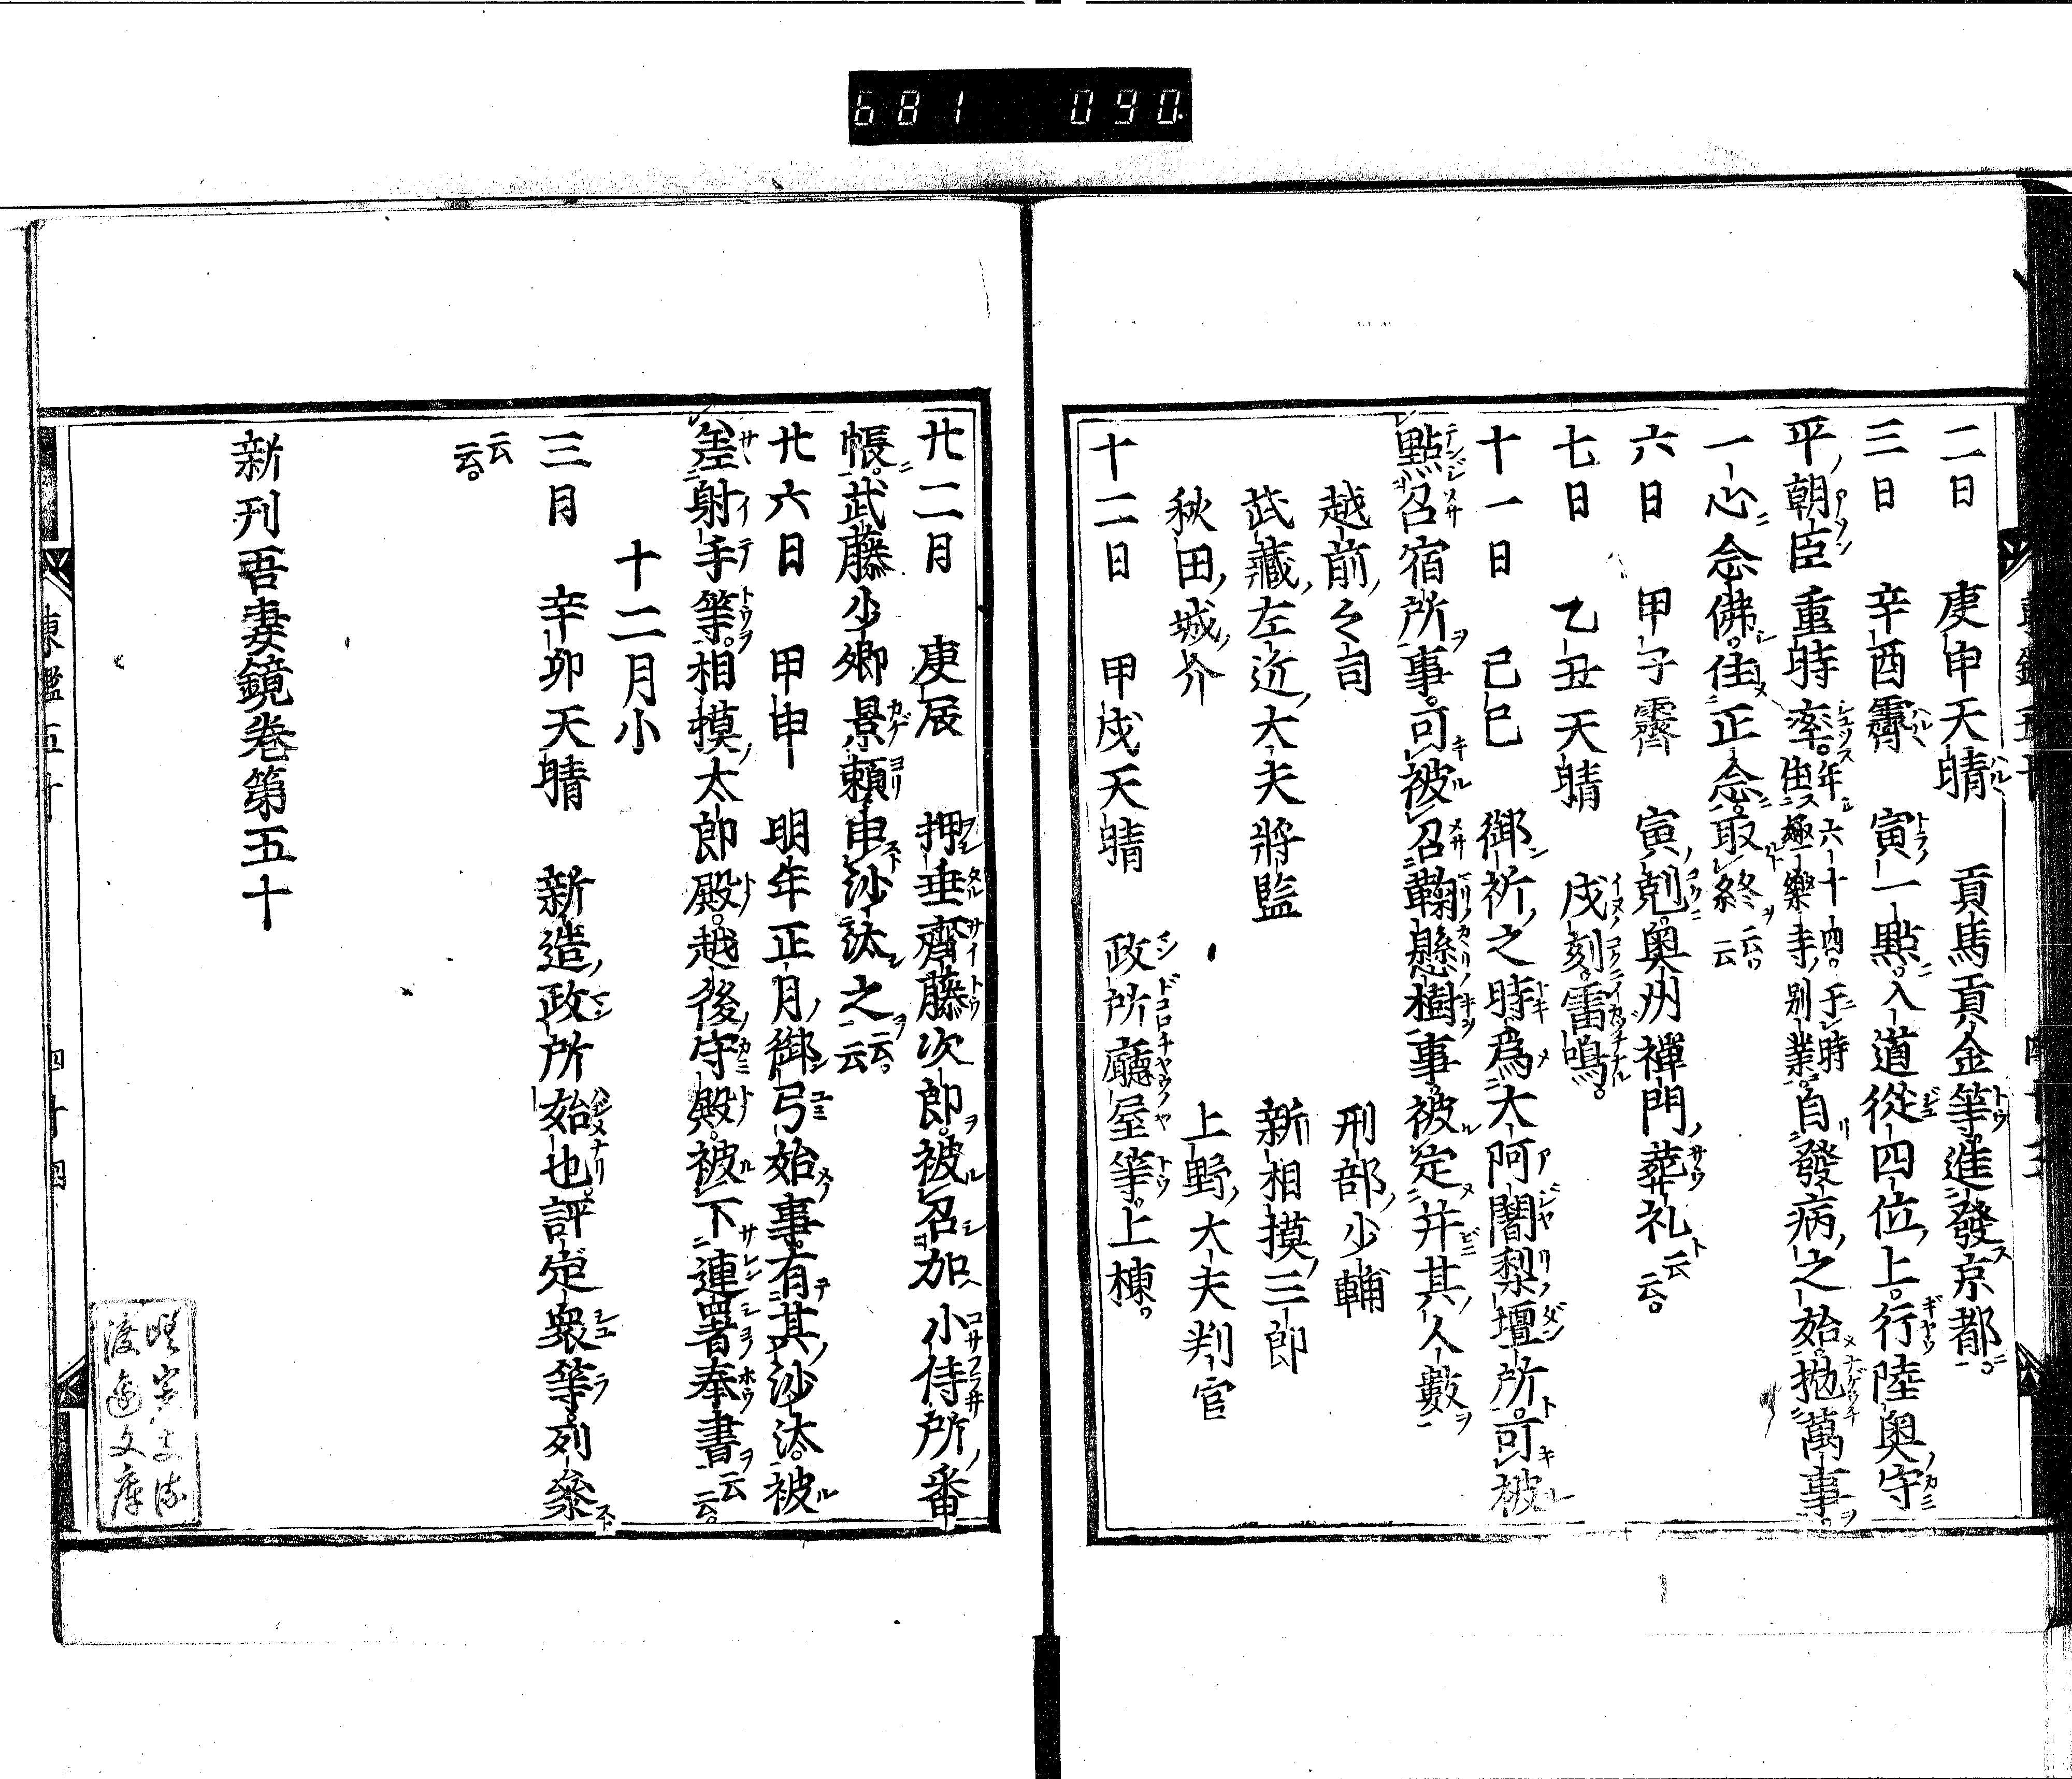 681 090
二日 庚申天晴 貢馬貢金等進發京都
三日 辛酉霽 寅一點入道從四位上行陸奥守
平朝臣重時卒年六十四于時住極樂寺別業自發病之始抛萬事
一心念佛住正念取終云云
六日 甲子霽 寅剋奥州禪門葬礼云云
七日 乙丑天晴 戌刻雷鳴
十一日 己巳 御祈之時爲大阿闍梨壇所可被
點召宿所事可被召鞠懸樹事被定并其人數
越前々司 刑部少輔
武藏左近大夫將監 新相摸三郎
秋田城介 上野大夫判官
十二日 甲戌天晴 政所廳屋等上棟
廿二月 庚辰 押垂齋藤次郎被召加小侍所番
帳武藤少卿景頼申沙汰之云云
廿六日 甲申 明年正月御弓始事有其沙汰被
差射手等相摸太郎殿越後守殿被下連署奉書云云
十二月小
三月 辛卯天晴 新造政所始也評定衆等列參
云云
新刊吾妻鏡卷第五十
東鑑五十 四十四
渡邊文庫